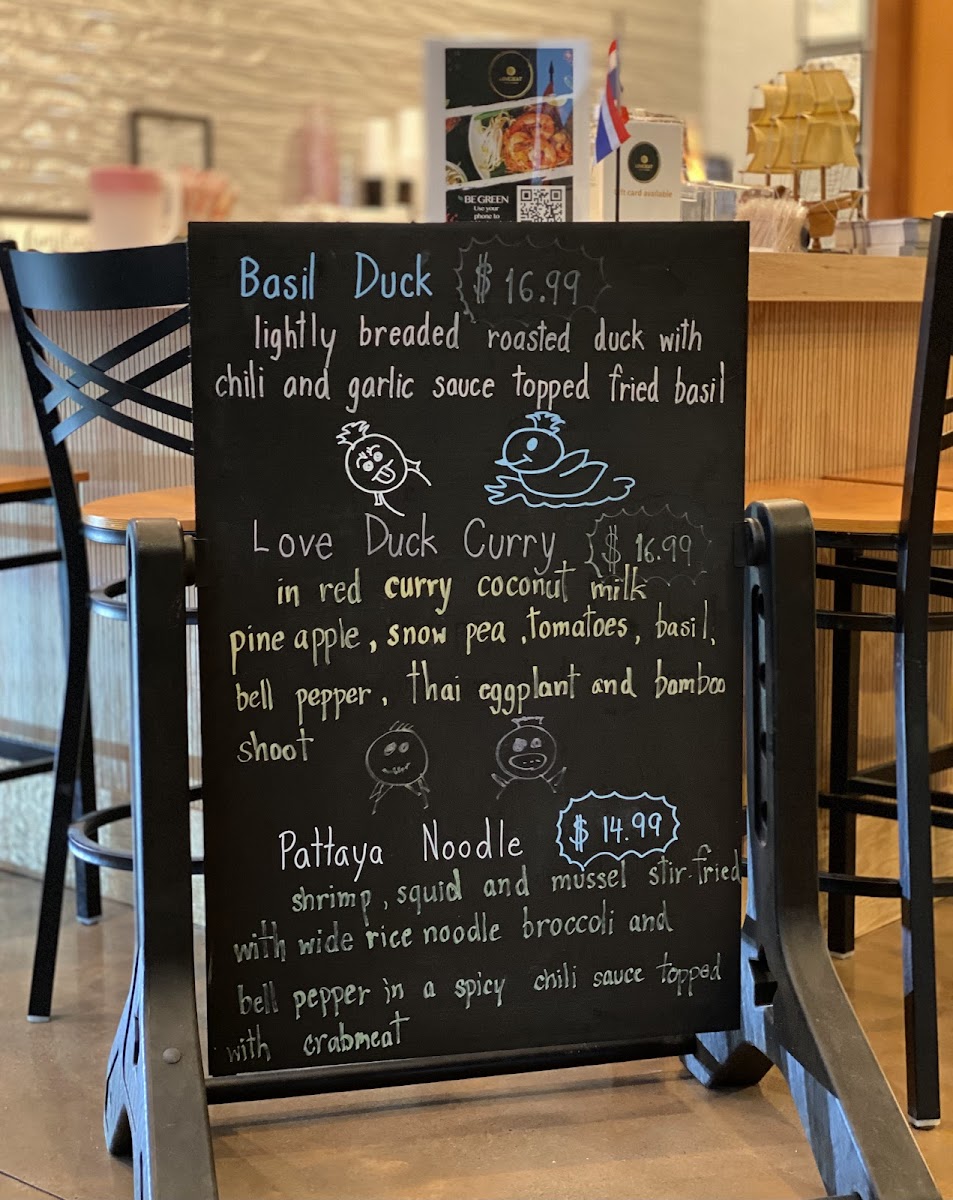 BE GREEN
Use your
phone to
gift card available
Basil Duck $ 16.99
lightly breaded roasted duck with
chili and garlic sauce topped fried basil
Love Duck Curry $ 16.99
in red curry coconut milk
pineapple, snow pea, tomatoes, basil,
bell pepper, thai eggplant and bamboo
shoot
Pattaya Noodle $ 14.99
shrimp, squid and mussel stir-fried
with wide rice noodle broccoli and
bell pepper in a spicy chili sauce topped
with crabmeat